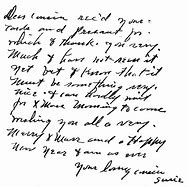 Dear cousin rec'd your
card and present for
which I thank you very
much I have not seen it
yet but I know that it
must be something very
nice. I can hardly wait
for Xmas morning to come
wishing you all a very
Merry Xmas and a Happy
New Year I am as ever
Your loving cousin
Susie